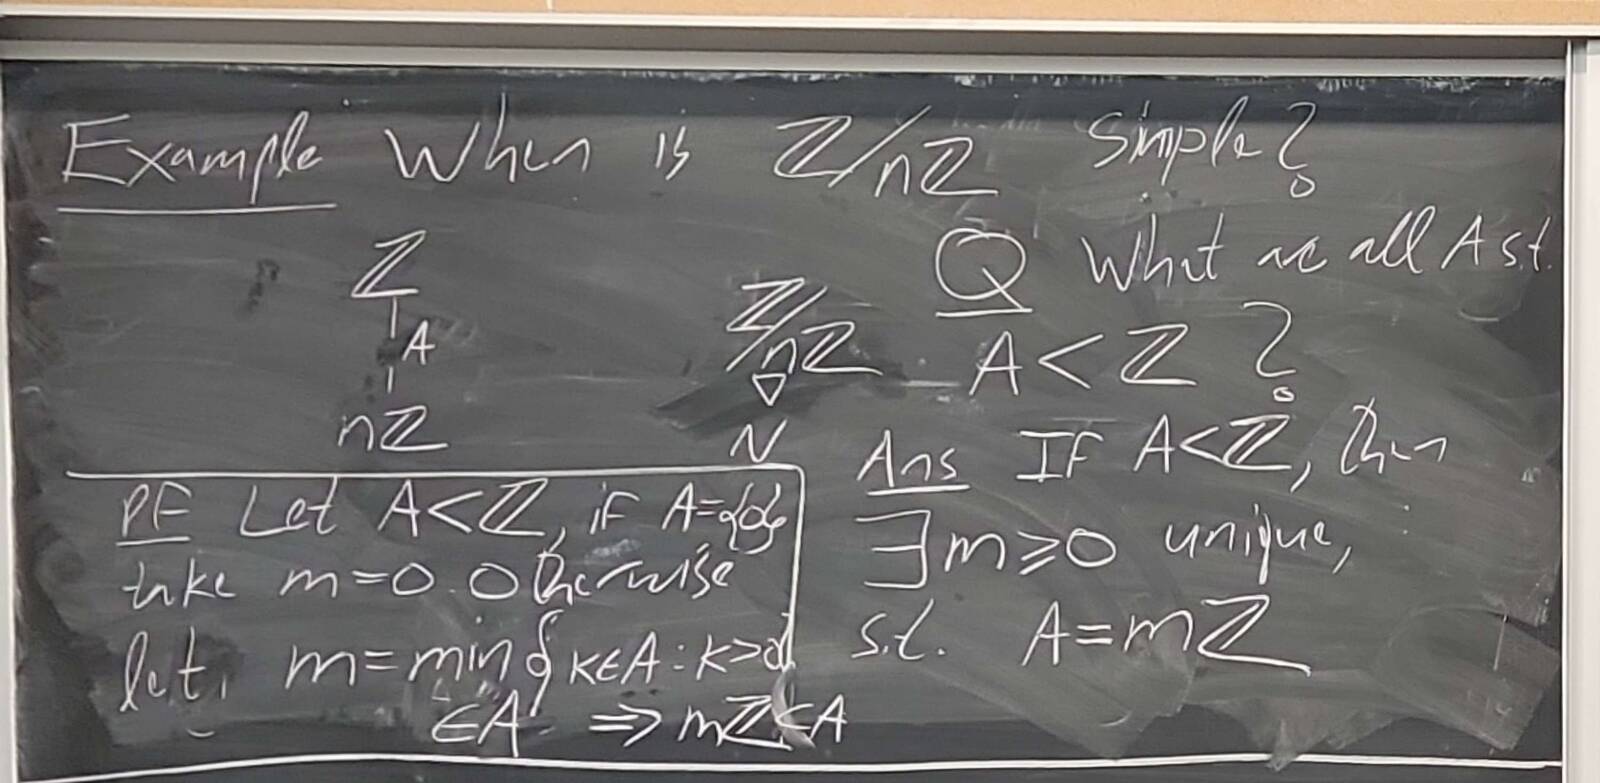 Example When is ℤ/nℤ simple?
ℤ
A
nℤ
ℤ/nℤ
▽
N
Q What are all A s.t.
A < ℤ ?
Ans If A<ℤ, then
∃ m ⩾ 0 unique,
s.t. A = mℤ
PF Let A<ℤ, if A={0}
take m=0. Otherwise
let, m = min{k∈A : k>0}
∈A ⇒ mℤ⊂A